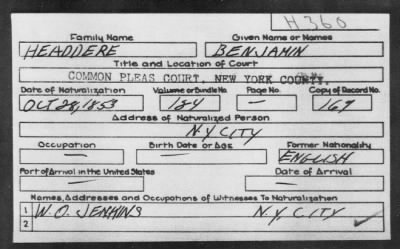 H360
Family Name Given Name or Names
HEADDERE BENJAMIN
Title and Location of Court
COMMON PLEAS COURT, NEW YORK COUNTY.
Date of Naturalization Volume or Bundle No. Page No. Copy of Record No.
OCT 28, 1853 184 — 167
Address of Naturalized Person
N.Y. CITY
Occupation Birth Date or Age Former Nationality
— — ENGLISH
Port of Arrival in the United States Date of Arrival
— —
Names, Addresses and Occupations of Witnesses To Naturalization
1 W. O. JENKINS N.Y. CITY
2